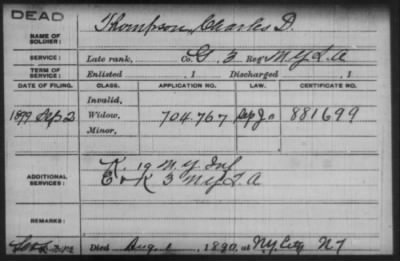 DEAD
NAME OF SOLDIER: Thompson, Charles D.
SERVICE: Late rank, Co. G. 3 Reg't N Y L A
TERM OF SERVICE: Enlisted , 1 Discharged , 1
DATE OF FILING. CLASS. APPLICATION NO. LAW. CERTIFICATE NO.
Invalid,
1899 Sep 2 Widow, 704.767 881699
Minor,
ADDITIONAL SERVICES: K. 19 N. Y. Inf
E & K 3 N Y L A
REMARKS:
Died Aug. 1, 1890, at N.Y. City NY